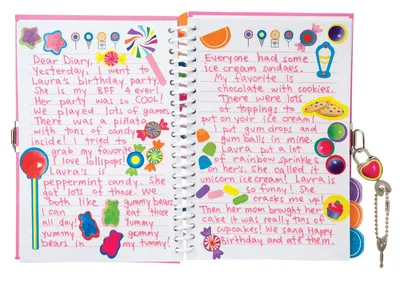 Dear Diary,
Yesterday, I went to
Laura's birthday party.
She is my BFF 4 ever!
Her party was so COOL!
We played lots of games.
There was a piñata
with tons of candy
inside! I tried to
grab my favorite
I love lollipops!
Laura's is
peppermint candy. She
got lots of those. We
both like gummy bears.
I can eat those
all day! Yummy
yummy gummy
bears in my tummy!
Everyone had some
ice cream sundaes.
My favorite is
chocolate with cookies.
There were lots
of toppings to
put on your ice cream!
I put gum drops and
gum balls in mine!
Laura put a lot
of rainbow sprinkles
on hers. She called it
unicorn ice cream! Laura is
so funny! She
cracks me up!
Then her mom brought her
cake it was really tons of
cupcakes! We sang Happy
Birthday and ate them.